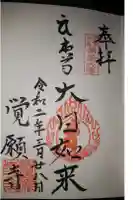 奉拝
大日如来
令和二年三月廿八日
覚願寺